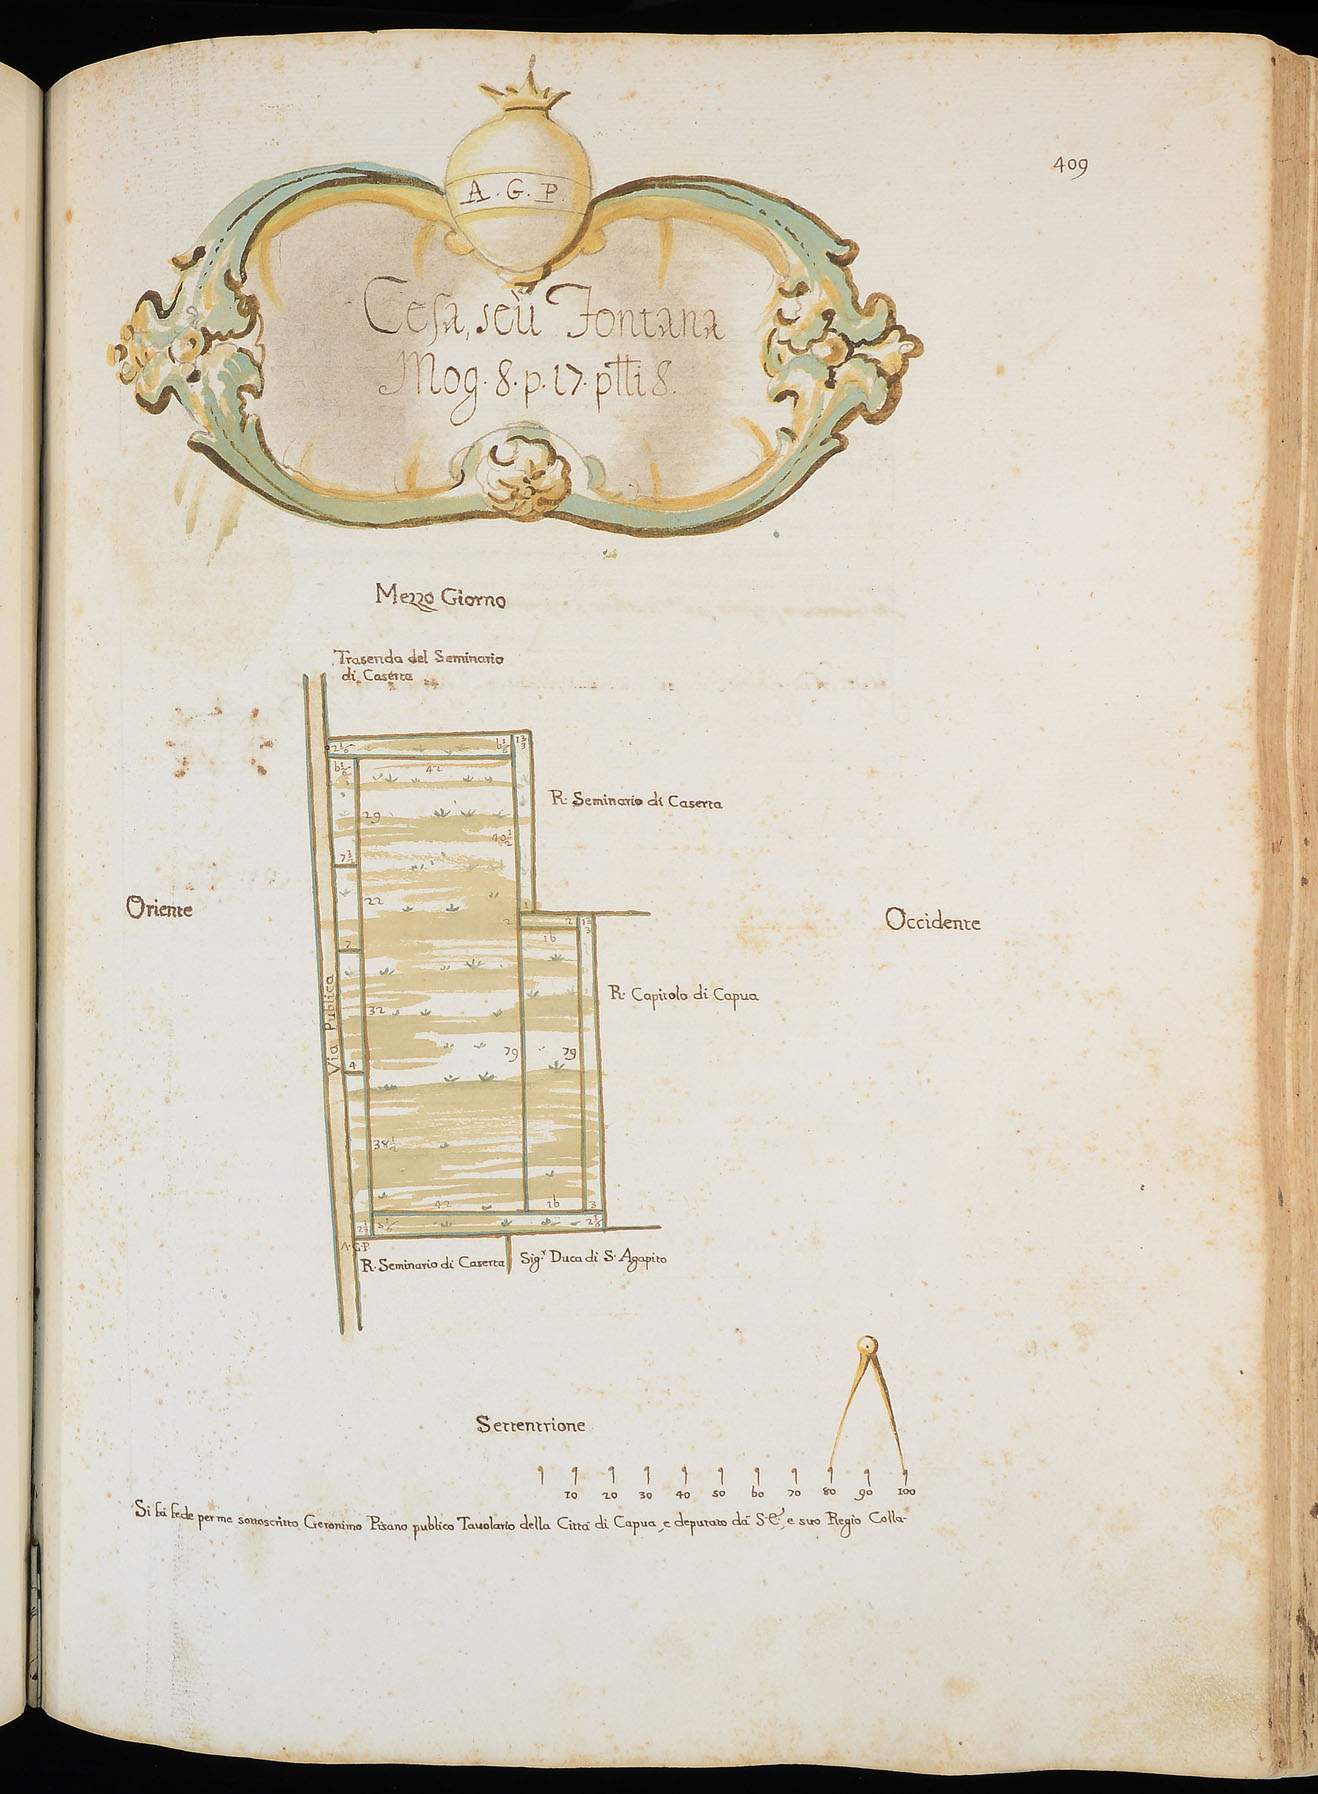 409
A. G. P.
Cesa, seù Fontana
Mog. 8. p. 17. ptti 8.
Mezzo Giorno
Trasenda del Seminario
di Caserta
2 1/6
6 1/6
1 2/3
6 1/6
42
29
40 1/2
7 1/2
22
1
2
2
1 2/3
16
7
32
79
79
4
38 1/2
42
16
3
2 1/6
R. Seminario di Caserta
Oriente
Occidente
R. Capitolo di Capua
Via Publica
A. G. P.
R. Seminario di Caserta
Sig.r Duca di S. Agapito
Settentrione
10 20 30 40 50 60 70 80 90 100
Si fà fede per me sottoscritto Geronimo Pisano publico Tavolario della Città di Capua, e deputato dà S. E., e suo Regio Colla-